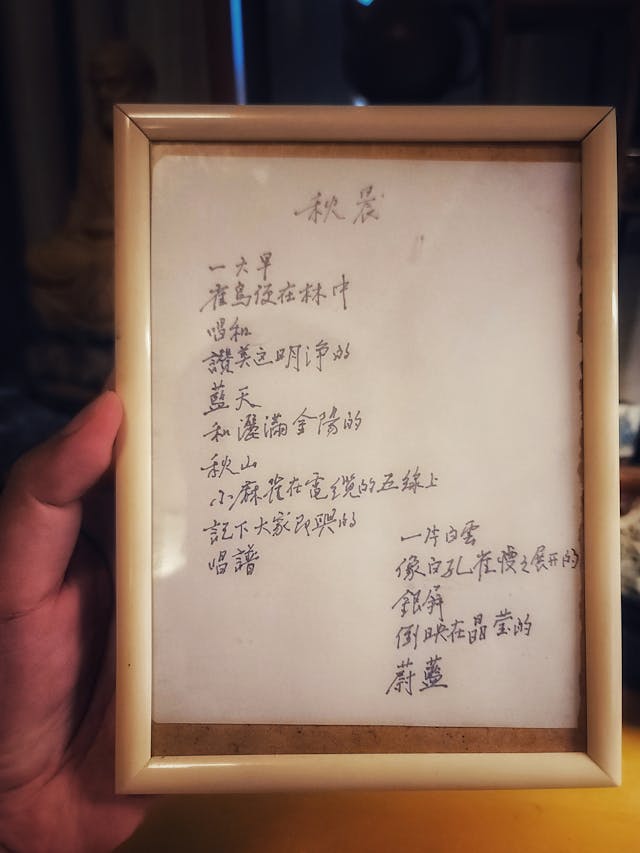 秋晨
一大早
雀鸟便在林中
唱和
讃美这明净的
藍天
和灑滿金陽的
秋山
小麻雀在電纜的五線上
記下大家即興的
唱譜
一片白雲
像白孔雀慢々展开的
銀屏
倒映在晶莹的
蔚藍